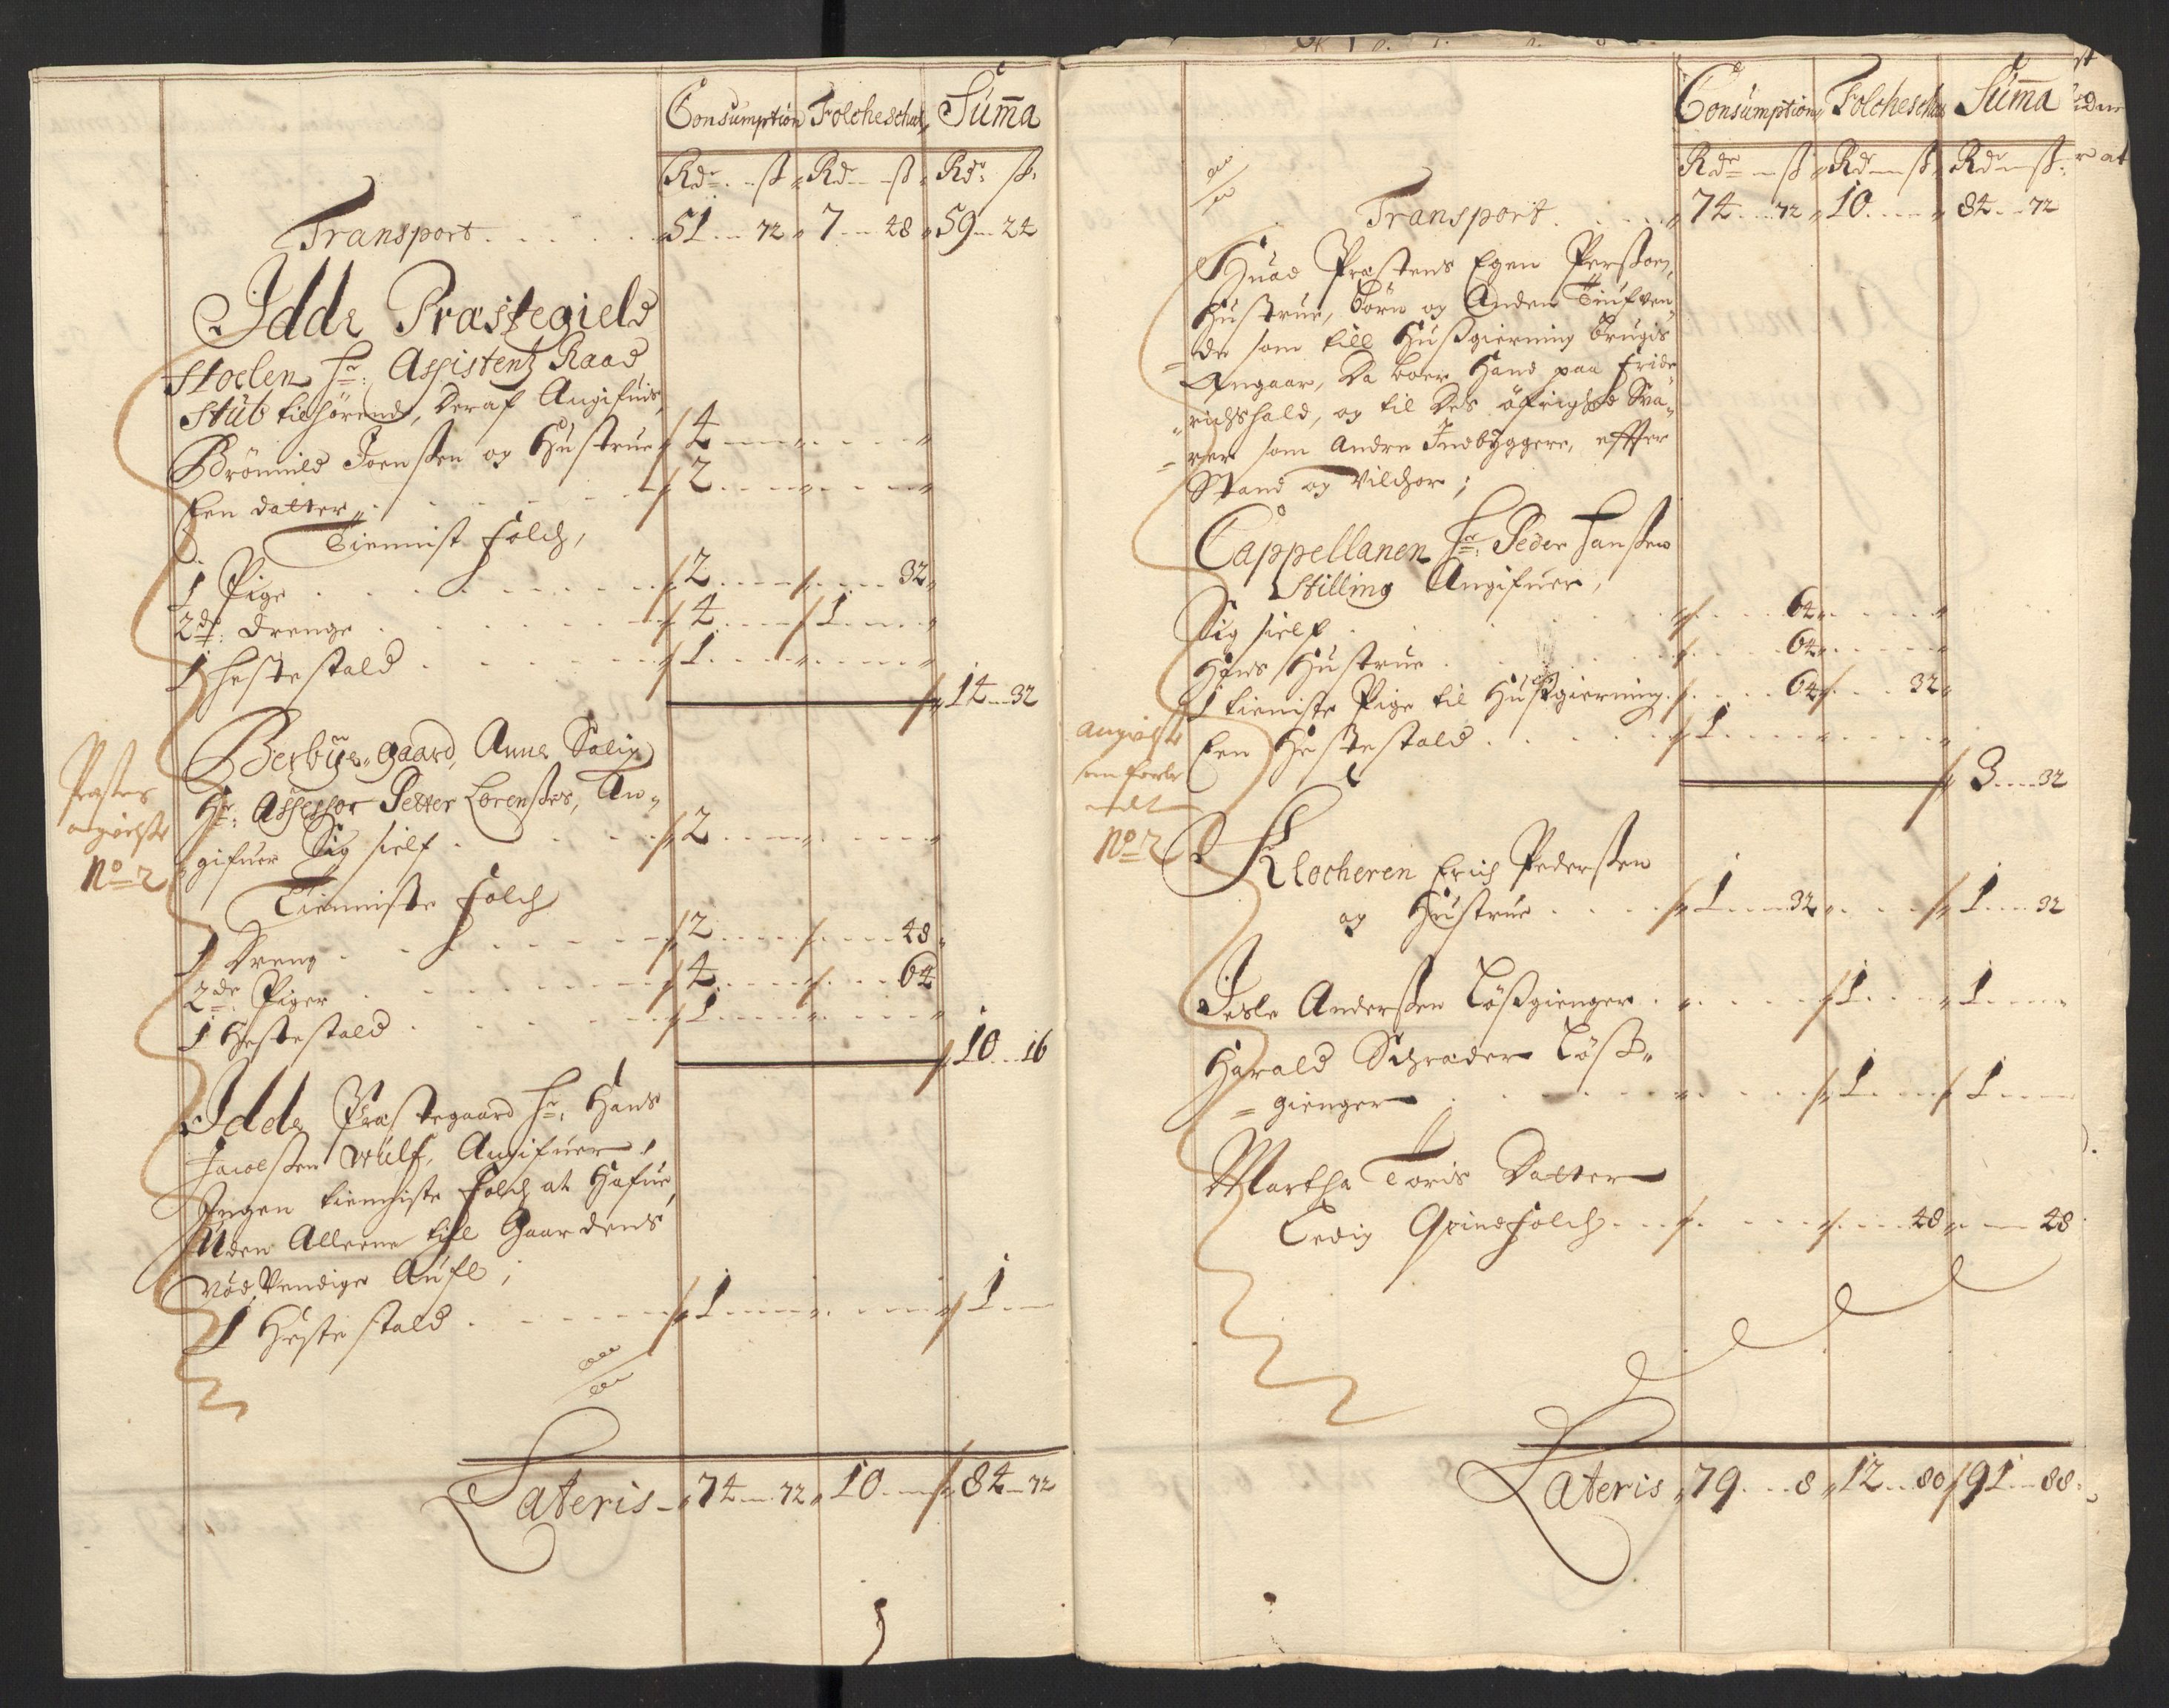 Consumption Folcheschat Suma
Rdr ß Rdr ß Rdr ß
Transport 51 72 7 48 59 24
Idde Præstegield
Stoelen Hr: Assistentz Raad
Stub tilhörende, Deraf Angifuis,
Brönnild Joenßen og Hustrue 4
Een datter 2
Tiennist folch,
1 Pige 2 32
2de: drenge 4 1
1 hestestald 1
14 32
Berbye gaard, Anne Salig
Hr: Assessor Petter Lorenßens, An-
gifuer Sig sielf 2
Præstens
angivelse
No 2
Tienniste folch
1 Dreng 2 48
2de Piger 4 64
1 Hestestald 1
10 16
Idde Præstegaard Hr. Hans
Jacobßen Wulf, Angifuer,
Ingen tienniste folch at Hafue,
Uden Alleene till Gaardens
nødvendige Aufl;
1 Heste stald 1 1
Lateris 74 72 10 84 72
Consumption Folcheschat Suma
Rdr ß Rdr ß Rdr ß
Transport 74 72 10 84 72
Huad Præstens Egen Perßon,
Hustrue, börn og Anden
de som till Hußgierning brugis
Angaar, Da boer Hand paa Fride-
richshald, og til Des öfrighed Sva-
rer som Andre Indbyggere, effter
Stand og Vilchor;
Cappellanen Hr: Peder Hanßen
Stilling Angifuer,
Sig sielf 64
Hans Hustrue 64
1 tieniste Pige til Hußgierning 64 32
Een Hestestald 1
3 32
angivelse
No 2
Klocheren Erich Pederßen
og Hustrue 1 32 1 32
Anderßen Lößgienger 1 1
Harald Schrader Löß-
gienger 1 1
Martha Toris Datter
Ledig Qvindfolch 48 48
Lateris 79 8 12 80 91 88